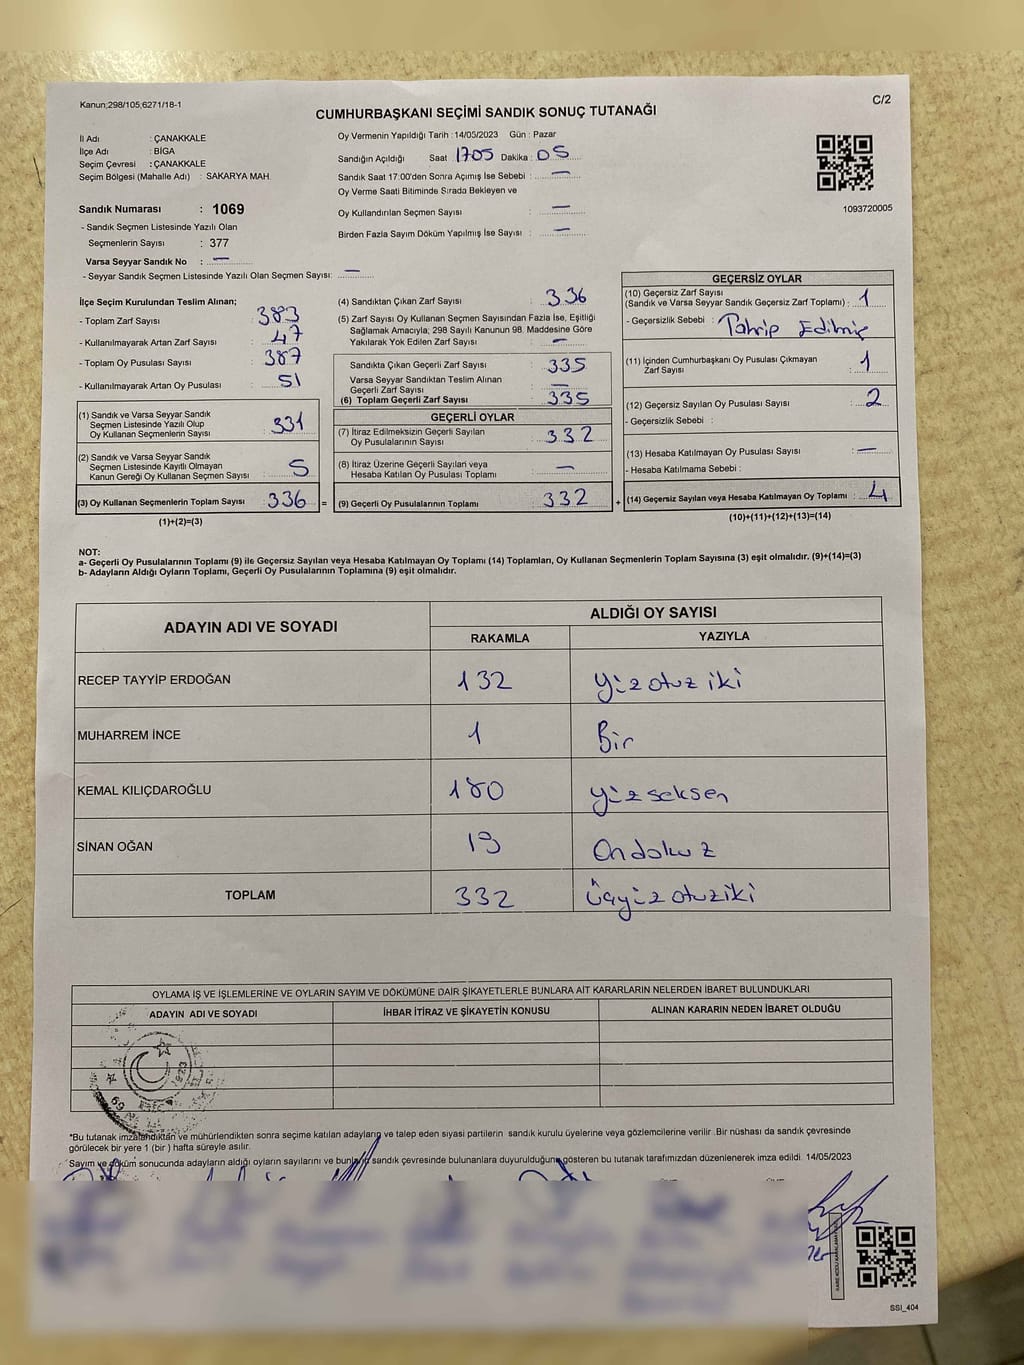 Kanun;298/105;6271/18-1
C/2
CUMHURBAŞKANI SEÇİMİ SANDIK SONUÇ TUTANAĞI
İl Adı : ÇANAKKALE
İlçe Adı : BİGA
Seçim Çevresi : ÇANAKKALE
Seçim Bölgesi (Mahalle Adı) : SAKARYA MAH.
Oy Vermenin Yapıldığı Tarih : 14/05/2023 Gün : Pazar
Sandığın Açıldığı Saat 1705 Dakika : 05
Sandık Saat 17:00'den Sonra Açımış İse Sebebi : —
Oy Verme Saati Bitiminde Sırada Bekleyen ve
Oy Kullandırılan Seçmen Sayısı : —
Birden Fazla Sayım Döküm Yapılmış İse Sayısı : —
1093720005
Sandık Numarası : 1069
- Sandık Seçmen Listesinde Yazılı Olan
Seçmenlerin Sayısı : 377
Varsa Seyyar Sandık No : —
- Seyyar Sandık Seçmen Listesinde Yazılı Olan Seçmen Sayısı: —
İlçe Seçim Kurulundan Teslim Alınan;
- Toplam Zarf Sayısı : 383
- Kullanılmayarak Artan Zarf Sayısı : 47
- Toplam Oy Pusulası Sayısı : 387
- Kullanılmayarak Artan Oy Pusulası : 51
(1) Sandık ve Varsa Seyyar Sandık
Seçmen Listesinde Yazılı Olup
Oy Kullanan Seçmenlerin Sayısı : 331
(2) Sandık ve Varsa Seyyar Sandık
Seçmen Listesinde Kayıtlı Olmayan
Kanun Gereği Oy Kullanan Seçmen Sayısı : 5
(3) Oy Kullanan Seçmenlerin Toplam Sayısı 336 =
(1)+(2)=(3)
(4) Sandıktan Çıkan Zarf Sayısı : 336
(5) Zarf Sayısı Oy Kullanan Seçmen Sayısından Fazla İse, Eşitliği
Sağlamak Amacıyla; 298 Sayılı Kanunun 98. Maddesine Göre
Yakılarak Yok Edilen Zarf Sayısı : —
Sandıkta Çıkan Geçerli Zarf Sayısı : 335
Varsa Seyyar Sandıktan Teslim Alınan
Geçerli Zarf Sayısı : —
(6) Toplam Geçerli Zarf Sayısı : 335
GEÇERLİ OYLAR
(7) İtiraz Edilmeksizin Geçerli Sayılan
Oy Pusulalarının Sayısı : 332
(8) İtiraz Üzerine Geçerli Sayılan veya
Hesaba Katılan Oy Pusulası Toplamı : —
(9) Geçerli Oy Pusulalarının Toplamı : 332 +
GEÇERSİZ OYLAR
(10) Geçersiz Zarf Sayısı
(Sandık ve Varsa Seyyar Sandık Geçersiz Zarf Toplamı) : 1
- Geçersizlik Sebebi : Tahrip Edilmiş
(11) İçinden Cumhurbaşkanı Oy Pusulası Çıkmayan
Zarf Sayısı : 1
(12) Geçersiz Sayılan Oy Pusulası Sayısı : 2
- Geçersizlik Sebebi :
(13) Hesaba Katılmayan Oy Pusulası Sayısı : —
- Hesaba Katılmama Sebebi :
(14) Geçersiz Sayılan veya Hesaba Katılmayan Oy Toplamı : 4
(10)+(11)+(12)+(13)=(14)
NOT:
a- Geçerli Oy Pusulalarının Toplamı (9) ile Geçersiz Sayılan veya Hesaba Katılmayan Oy Toplamı (14) Toplamları, Oy Kullanan Seçmenlerin Toplam Sayısına (3) eşit olmalıdır. (9)+(14)=(3)
b- Adayların Aldığı Oyların Toplamı, Geçerli Oy Pusulalarının Toplamına (9) eşit olmalıdır.
ADAYIN ADI VE SOYADI ALDIĞI OY SAYISI
RAKAMLA YAZIYLA
RECEP TAYYİP ERDOĞAN 132 Yüzotuz iki
MUHARREM İNCE 1 Bir
KEMAL KILIÇDAROĞLU 180 Yüzseksen
SİNAN OĞAN 19 Ondokuz
TOPLAM 332 Üçyüzotuziki
OYLAMA İŞ VE İŞLEMLERİNE VE OYLARIN SAYIM VE DÖKÜMÜNE DAİR ŞİKAYETLERLE BUNLARA AİT KARARLARIN NELERDEN İBARET BULUNDUKLARI
ADAYIN ADI VE SOYADI İHBAR İTİRAZ VE ŞİKAYETİN KONUSU ALINAN KARARIN NEDEN İBARET OLDUĞU
*Bu tutanak imzalandıktan ve mühürlendikten sonra seçime katılan adayların ve talep eden siyasi partilerin sandık kurulu üyelerine veya gözlemcilerine verilir. Bir nüshası da sandık çevresinde
görülecek bir yere 1 (bir) hafta süreyle asılır.
Sayım ve döküm sonucunda adayların aldığı oyların sayılarını ve bunların sandık çevresinde bulunanlara duyurulduğunu gösteren bu tutanak tarafımızdan düzenlenerek imza edildi. 14/05/2023
SSI_404